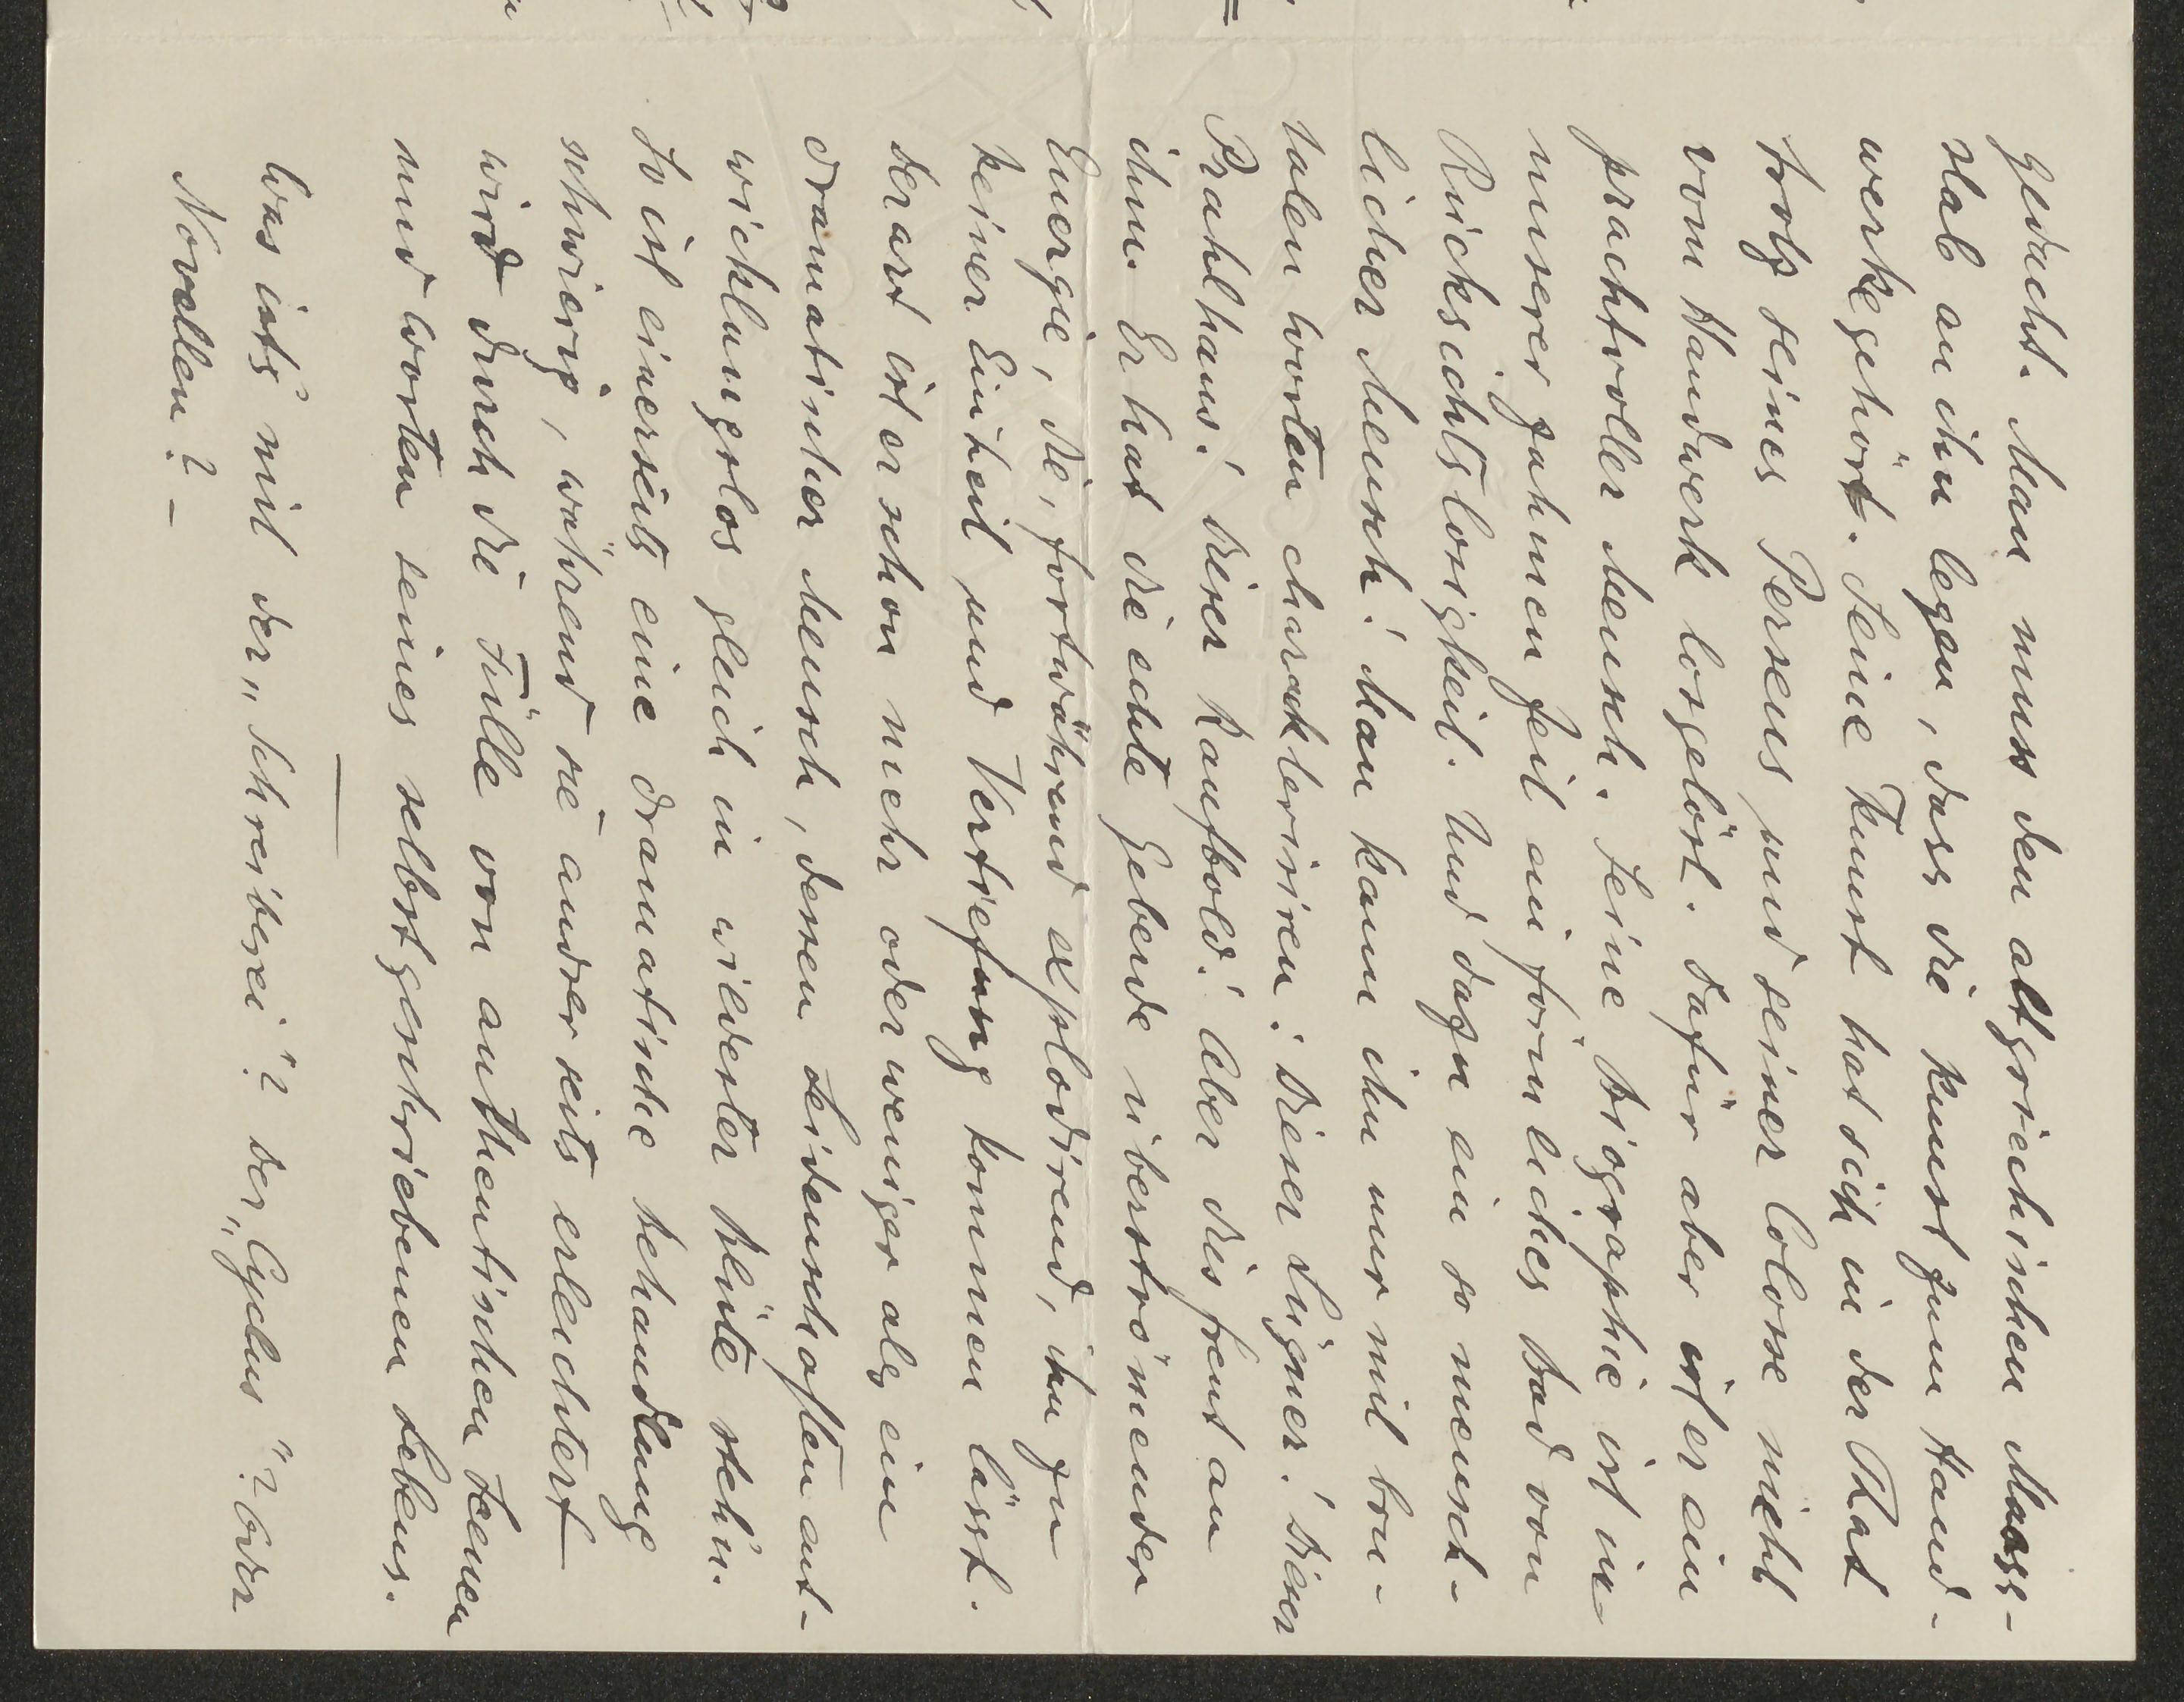 gedacht. Man muss den altgriechischen Maass-
stab an ihn legen, dass die Kunst zum Hand-
werke gehört. Seine Kunst hat sich in der That
trotz seines Perseus und seiner Colosse nicht
vom Handwerk losgelöst. Dafür aber ist er ein
prachtvoller Mensch. Seine Biographie ist in
unserer zahmen Zeit ein förmliches Bad von
Rücksichtslosigkeit. Und dazu ein so mensch-
licher Mensch! Man kann ihn nur mit bru-
talen Worten charakterisiren: Dieser Lügner! Dieser
Prahlhans! Dieser Raufbold! Aber dies freut an
ihm. Er hat die echte Gebende überströmender
Energie, die, fortwährend explodirend, ihn zu
keiner Einheit und Vertiefung kommen lässt.
Derart ist er schon mehr oder weniger als ein
dramatischer Mensch, dessen Leidenschaften ent-
wicklungslos gleich in wildester Blüte stehn.
So ist einerseits eine dramatische Behandlung
schwierig, während sie andrerseits erleichtert
wird durch die Fülle von authentischen Scenen
und Worten seines selbstgeschriebenen Lebens.
Was ists mit der „Schreiberei"? Der „Cyclus"? Oder
Novellen? –